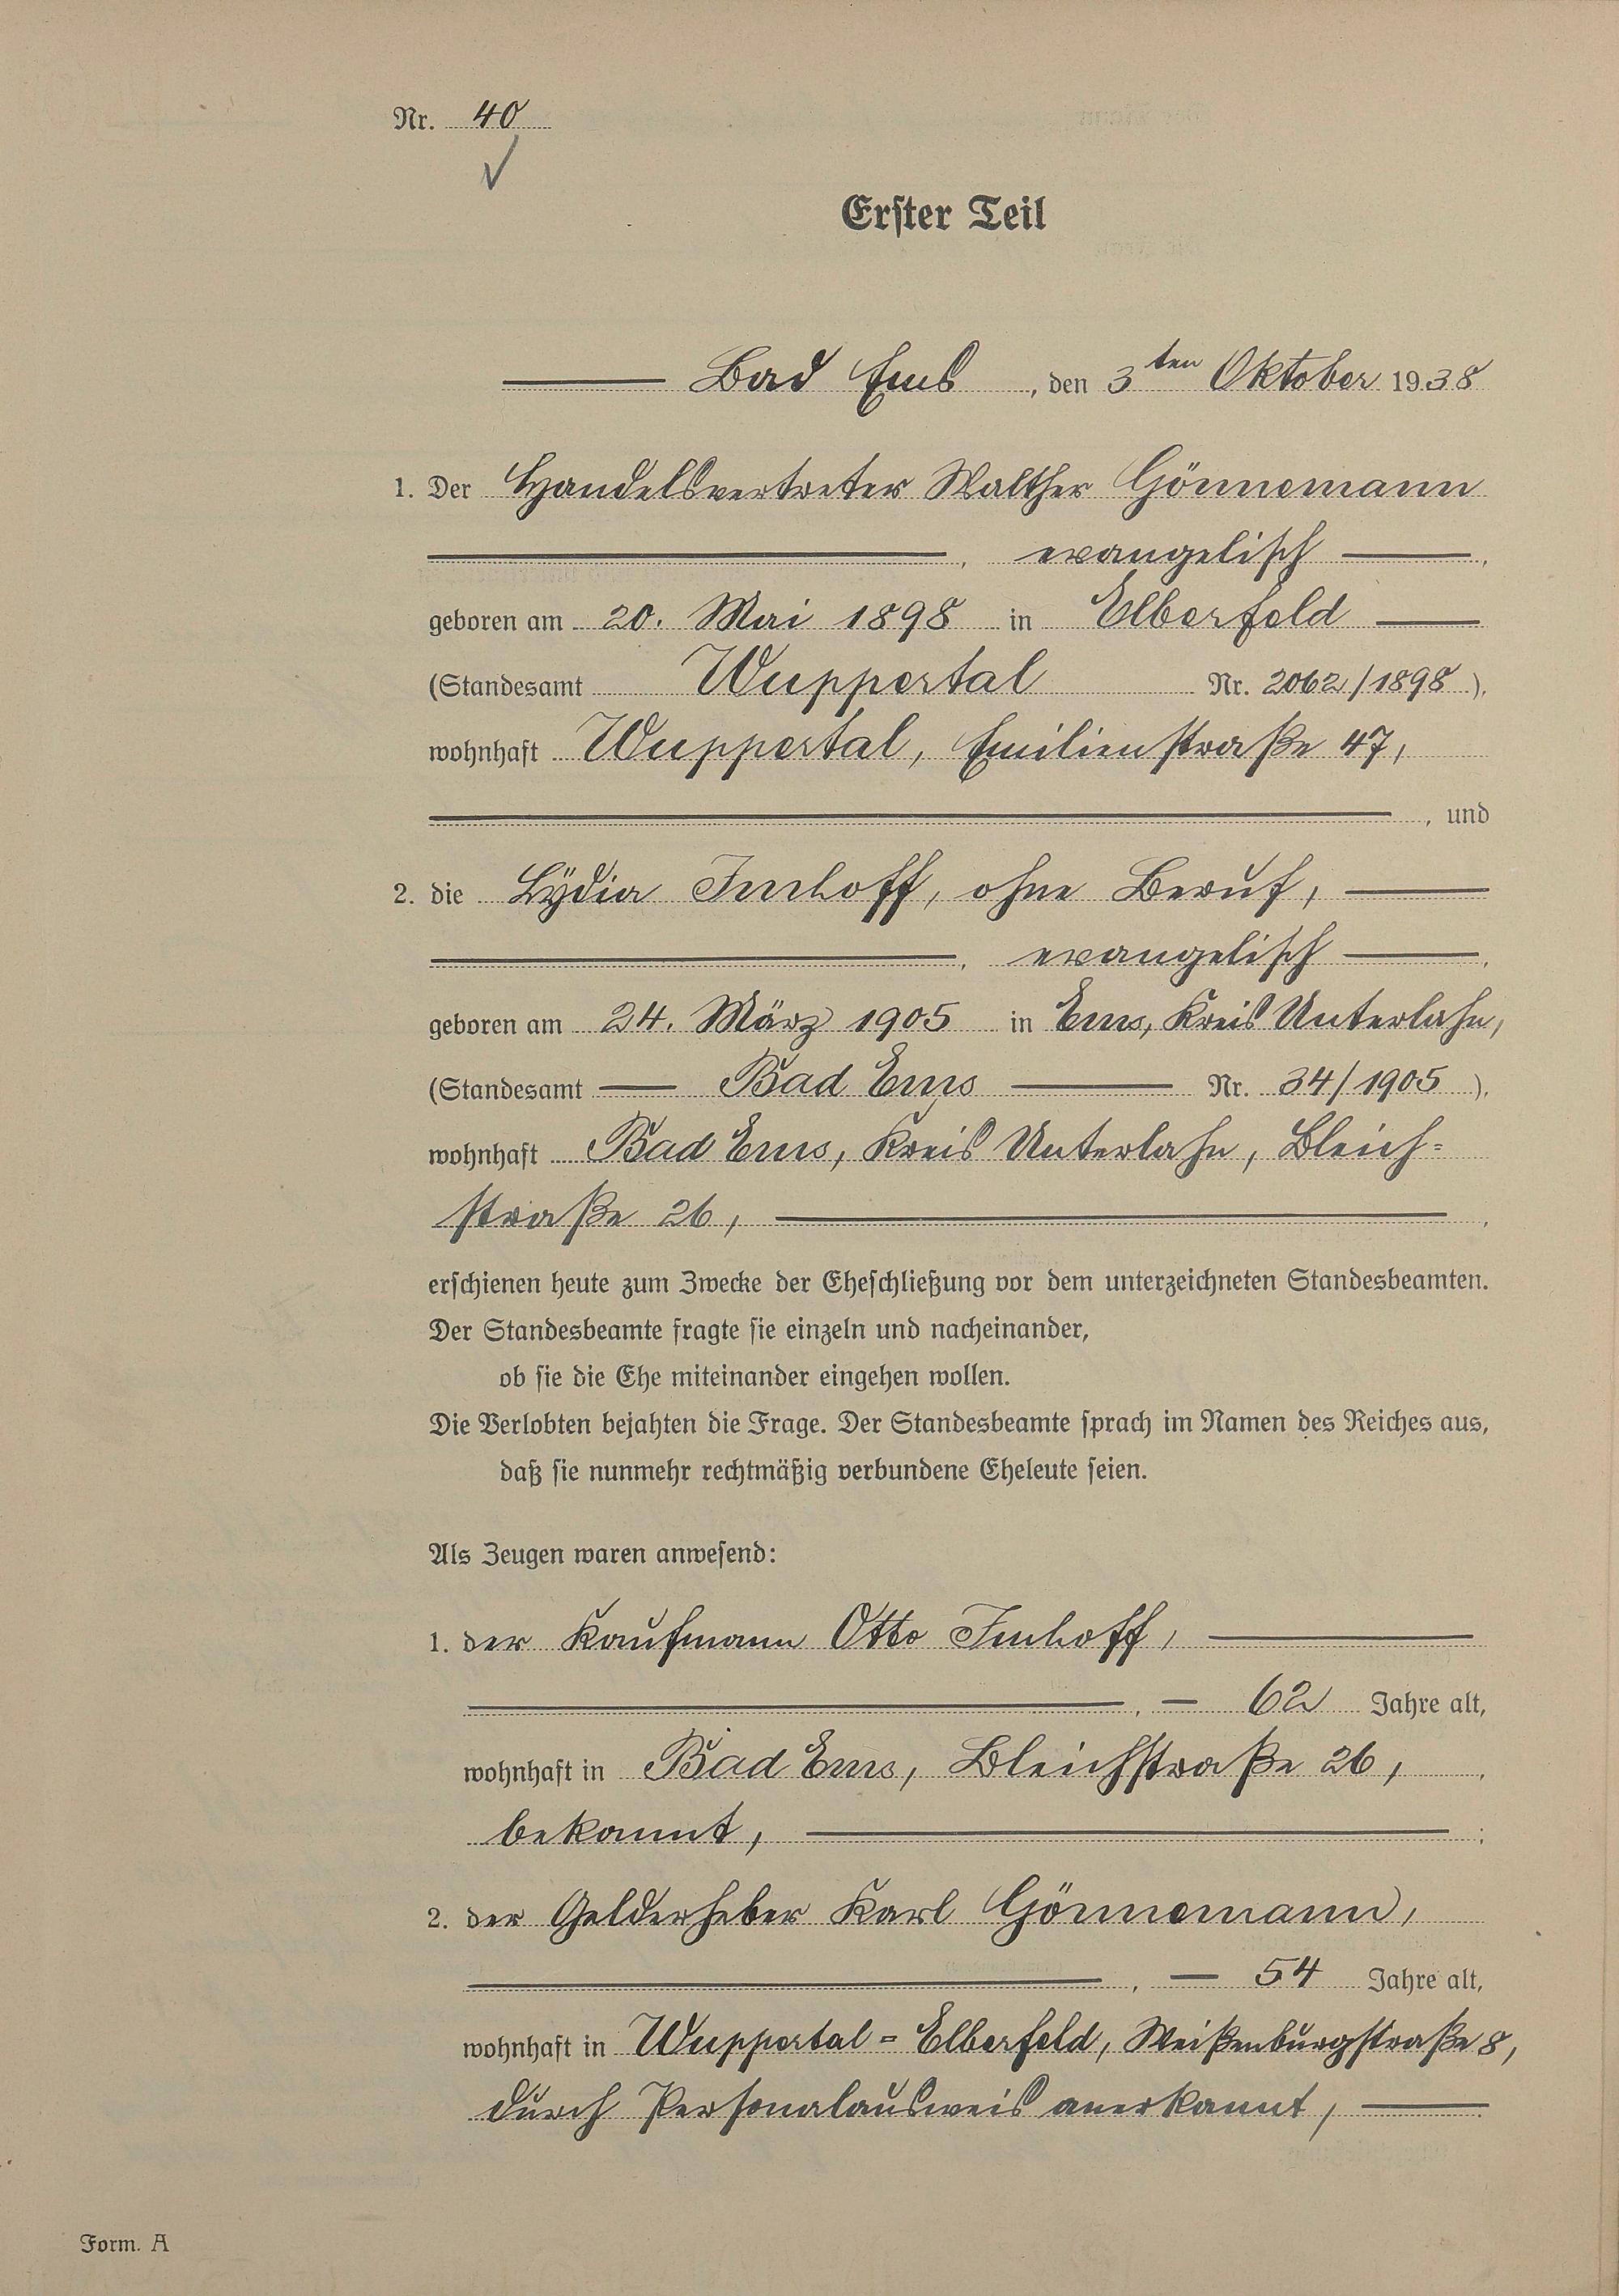 Nr. 40
Erster Teil
Bad Ems, den 3ten Oktober 1938
1. Der Handelsvertreter Walther Gönnemann
, evangelisch ,
geboren am 20. Mai 1898 in Elberfeld
(Standesamt Wuppertal Nr. 2062/1898 ),
wohnhaft Wuppertal, Emilienstraße 47,
, und
2. die Lÿdia Imhoff, ohne Beruf,
, evangelisch ,
geboren am 24. März 1905 in Ems, Kreis Unterlahn,
(Standesamt Bad Ems Nr. 34/1905 ),
wohnhaft Bad Ems, Kreis Unterlahn, Bleich=
straße 26, ,
erschienen heute zum Zwecke der Eheschließung vor dem unterzeichneten Standesbeamten.
Der Standesbeamte fragte sie einzeln und nacheinander,
ob sie die Ehe miteinander eingehen wollen.
Die Verlobten bejahten die Frage. Der Standesbeamte sprach im Namen des Reiches aus,
daß sie nunmehr rechtmäßig verbundene Eheleute seien.
Als Zeugen waren anwesend:
1. der Kaufmann Otto Imhoff,
, 62 Jahre alt,
wohnhaft in Bad Ems, Bleichstraße 26, ,
bekannt, ;
2. der Gelderheber Karl Gönnemann,
, 54 Jahre alt,
wohnhaft in Wuppertal=Elberfeld, Weißenburgstraße 8,
durch Personalausweis anerkannt,
Form. A